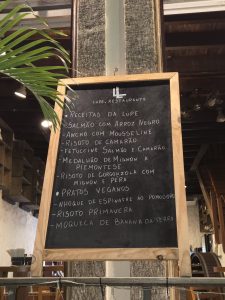 LUPE. RESTAURANTE
• RECEITAS DA LUPE
- SALMÃO COM ARROZ NEGRO
- ANCHO COM MOUSSELINE
- RISOTO DE CAMARÃO
- FETUCCINE SALMÃO E CAMARÃO
- MEDALHÃO DE MIGNON A
PIEMONTESE
- RISOTO DE GORGONZOLA COM
MIGNON E PERA
• PRATOS VEGANOS
- NHOQUE DE ESPINAFRE AO POMODORO
- RISOTO PRIMAVERA
- MOQUECA DE BANANA DA TERRA